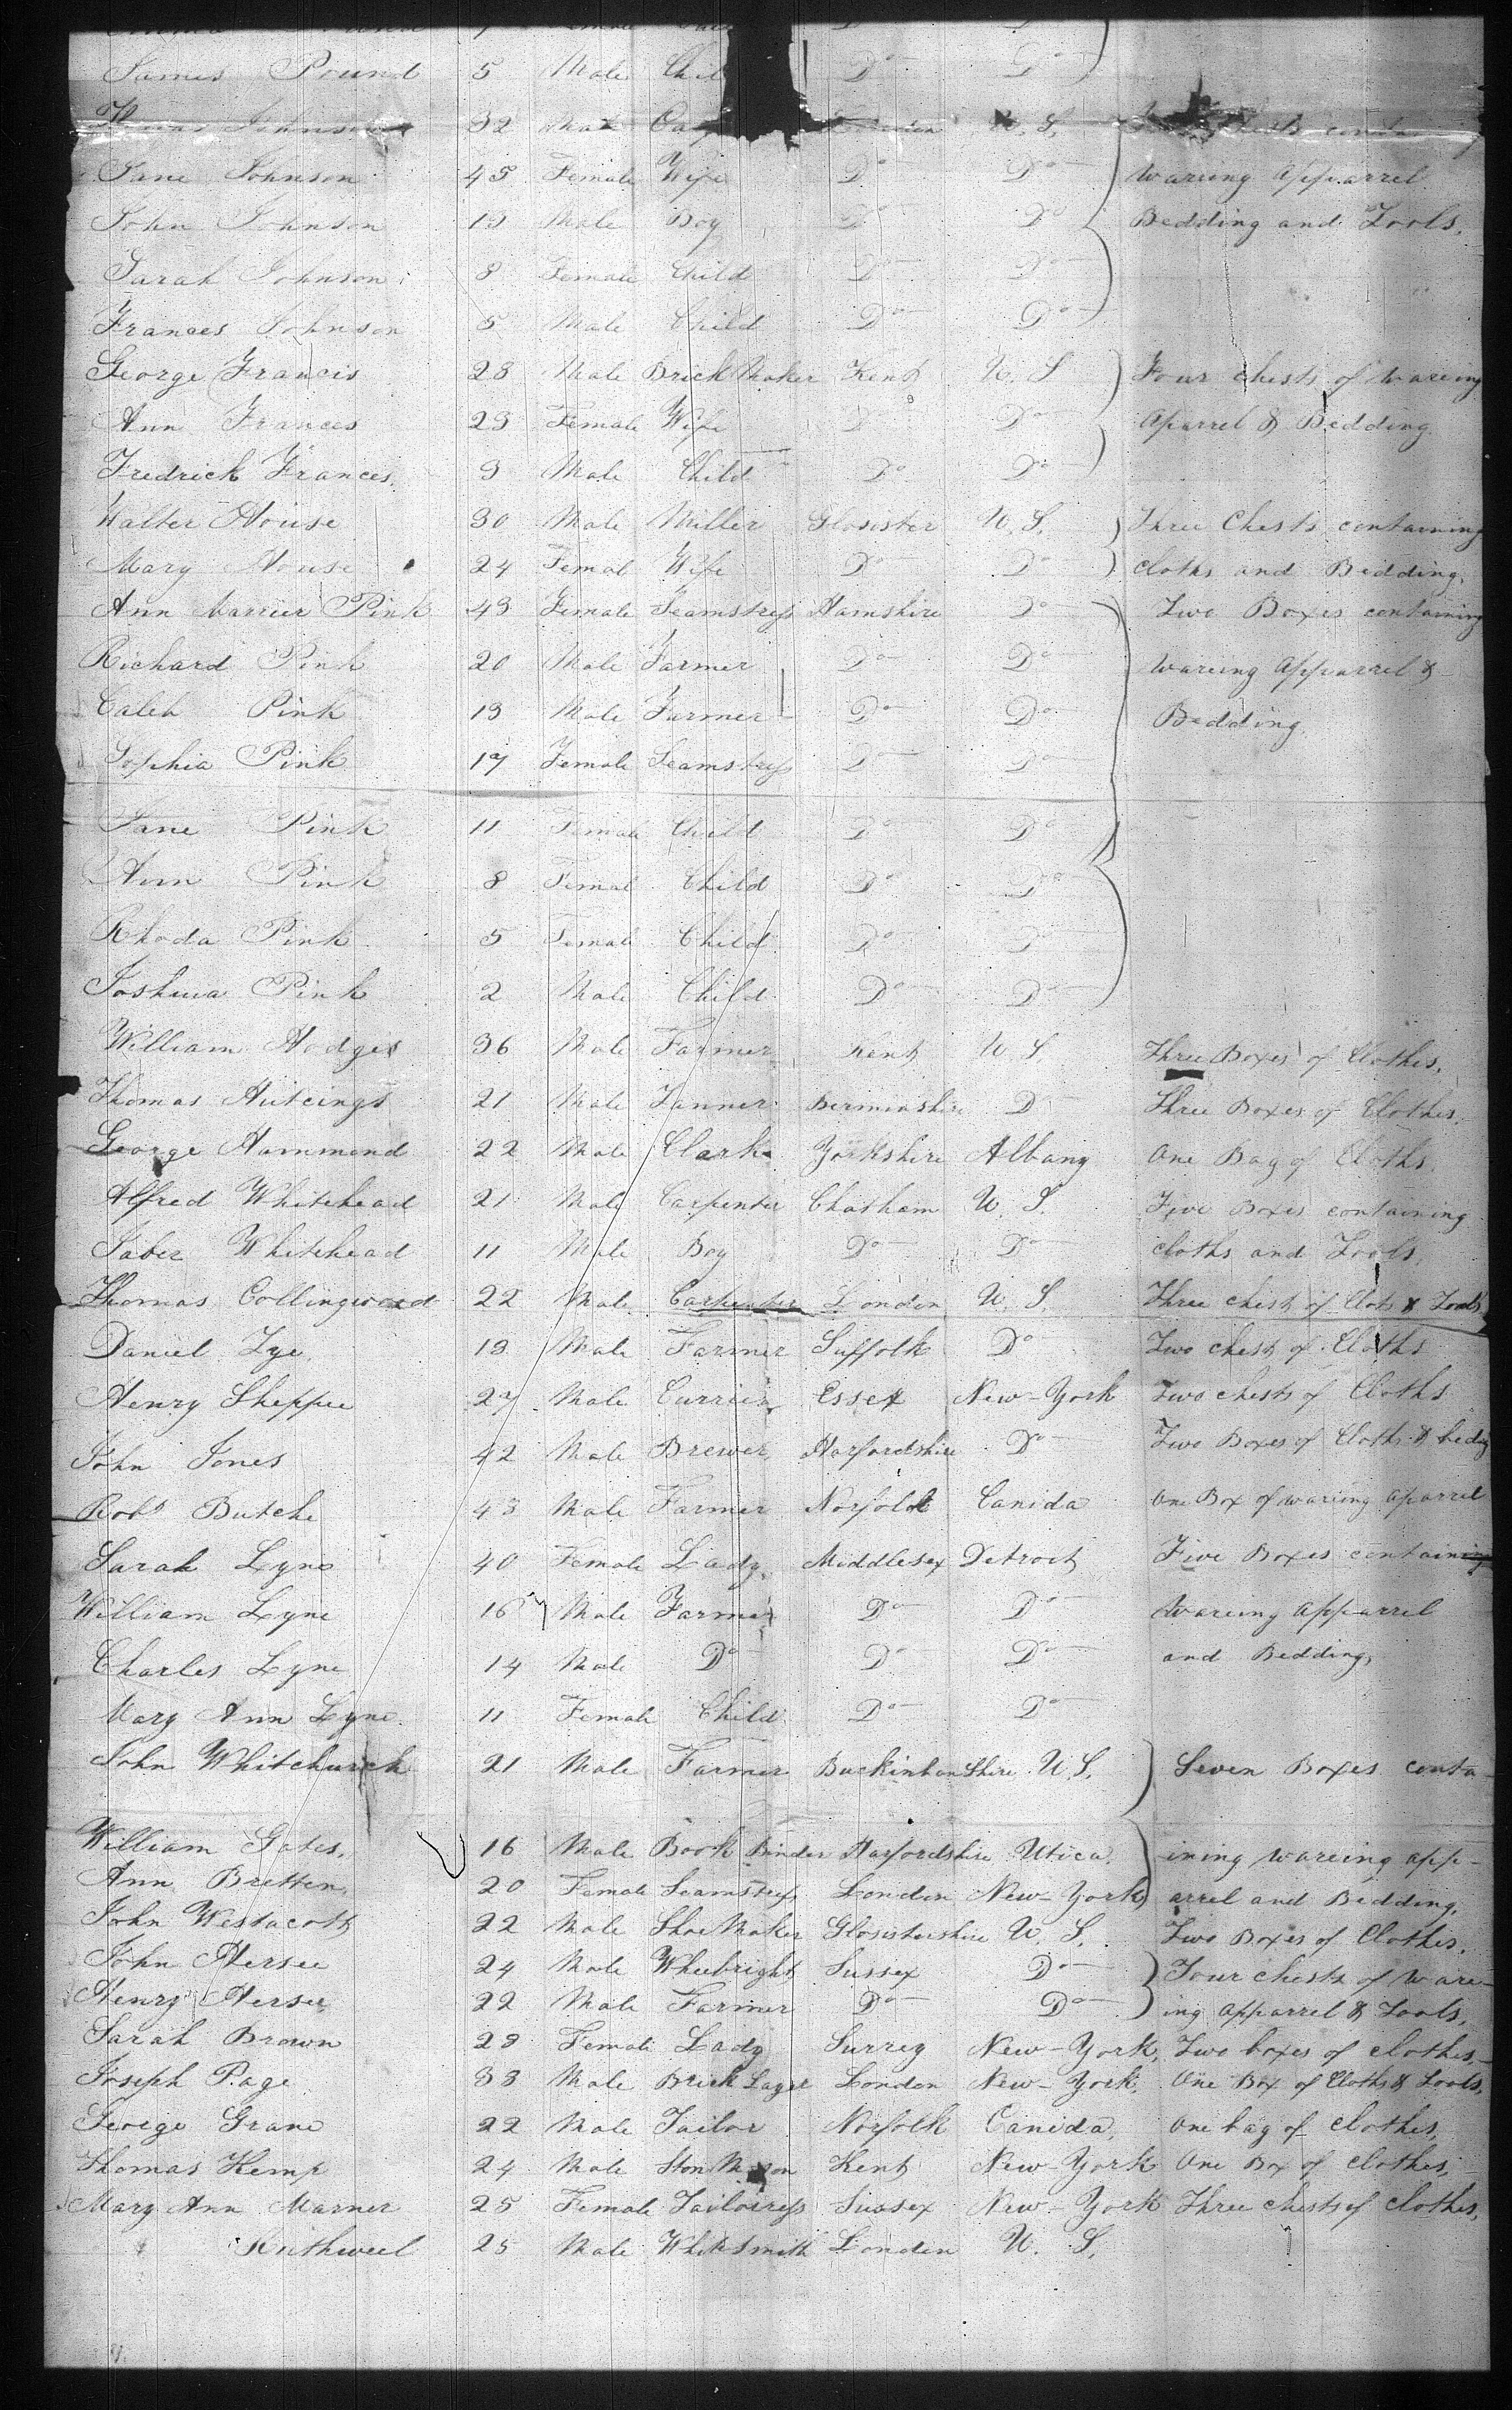 James Pound 5 Male Do Do
Johnson 32 Male U. S.
Jane Johnson 45 Female Wife Do Do wareing Apparrel
John Johnson 13 Male Boy Do Do Bedding and Tools,
Sarah Johnson 8 Female Child Do Do
Frances Johnson 5 Male Child Do Do
George Francis 28 Male Brick Maker Kent U. S Four chests of wareing
Ann Frances 23 Female Wife Do Do Aparrel & Bedding
Fredrick Frances 3 Male Child Do Do
Walter House 30 Male Miller Glosister U. S. Three Chests containing
Mary House 24 Femal Wife Do Do cloths and Bedding,
Ann Marrier Pink 43 Female Seamstress Hamshire Do Two Boxes containing
Richard Pink 20 Male Farmer Do Do wareing Apparrel &
Caleb Pink 19 Male Farmer Do Do Bedding
Sophia Pink 17 Female Seamstress Do Do
Jane Pink 11 Female Child Do Do
Ann Pink 8 Femal Child Do Do
Rhoda Pink 5 Femal Child Do Do
Joshua Pink 2 Male Child Do Do
William Hodges 36 Male Farmer Kent U S. Three Boxes of Clothes,
Thomas Hutcings 21 Male Tanner Do Three Boxes of Clothes.
George Hammond 22 Male Clark Yorkshire Albany One Bag of Cloths.
Alfred Whitehead 21 Male Carpenter Chatham U. S. Five Boxes containing
Jaber Whitehead 11 Male Boy Do Do cloths and Tools,
Thomas Collingwood 22 Male Carpenter London U. S. Three chest of Clots & Tools
Daniel Tye 19 Male Farmer Suffolk Do Two chests of Cloths
Henry Sheppee 27 Male Currier Essex New-York Two chests of Cloths
John Jones 42 Male Brewer Harfordshire Do Two Boxes of Cloths & beding
Robt Butche 43 Male Farmer Norfolk Canida One Box of wareing Aparrel
Sarah Lyne 40 Female Lady, Middlesex Detroit Five Boxes containing
William Lyne 16 Male Farmer Do Do Wareing Apparrel
Charles Lyne 14 Male Do Do Do and Bedding,
Mary Ann Lyne 11 Female Child Do Do
John Whitchurch 21 Male Farmer BuckinhanShire U.S. Seven Boxes conta
William Gates, 16 Male Book Binder Harfordshire Utica, ining wareing app-
Ann Bretten, 20 Female Seamstress London New-York arrel and Bedding,
John Westacott 22 Male Shoe Maker Glosistershire U. S. Two Boxes of Clothes,
John Hersee 24 Male Wheebright Sussex Do Four chests of ware-
Henry Hersee 22 Male Farmer Do Do ing Apparrel & Tools,
Sarah Brown 28 Female Lady Surrey New-York, Two boxes of clothes,
Joseph Page 33 Male Brick Layer London New-York, One Box of Cloths & Tools,
George Grane 22 Male Tailor Norfolk Canida, One bag of clothes,
Thomas Kemp 24 Male Ston Mason Kent New-York One Box of clothes,
Mary Ann Marner 25 Female Tailoress Sussex New-York Three chests of clothes,
Ruthweel 25 Male Whitesmith London U. S.